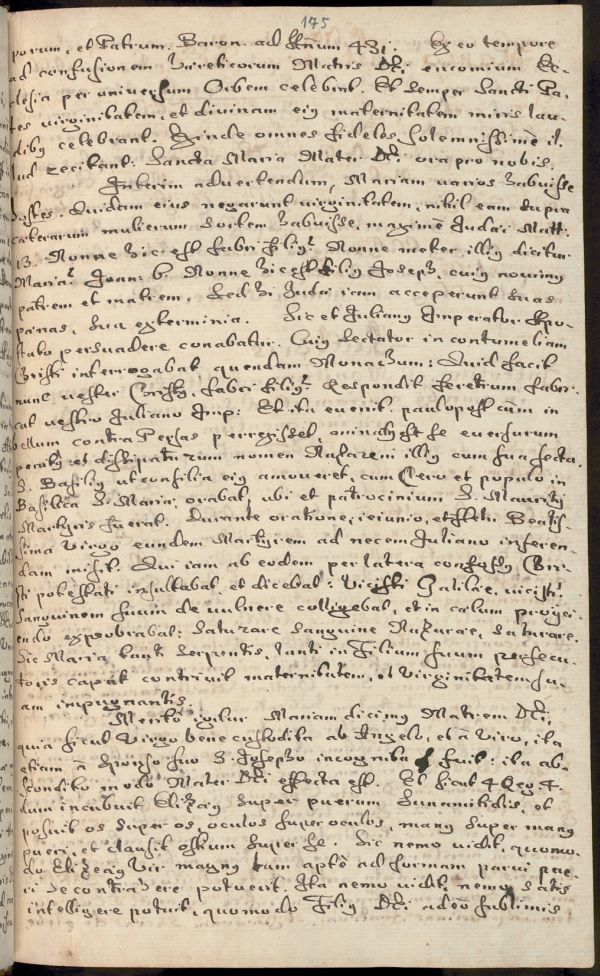 175
porum, et Patrum. Baron. ad annum 431. Ex eo tempore
ad confusionem hæreticorum Matris Dei encomium Ec-
clesia per universum Orbem celebrat. Et semper Sancti Pa-
tres virginitatem, et divinam eius maternitatem miris lau-
dibus celebrant. Exinde omnes fideles solemnissimè il-
lud recitant: Sancta Maria Mater Dei ora pro nobis.
Interim advertendum, Mariam varios habuisse
hostes. Quidam eius negarunt virginitatem, nihil eam supra
cæterarum mulierum sortem habuisse, maximè Judæi. Matth:
13. Nonne hic est fabri filius? Nonne mater illius dicitur
Maria? Joan: 6. Nonne hic est filius Joseph, cuius novimus
patrem et matrem. Sed hi Judæi iam acceperunt suas
pænas, sua exterminia. Sic et Julianus Imperator Apo-
stata persuadere conabatur. Cuius sectator in contumeliam
Christi interrogabat quendam Monachum: Quid facit
nunc vester Christus, fabri filius? Respondit feretrum fabri-
cat vestro Juliano Imp: Et ita evenit. paulo post cùm in
bellum contra Persas perrexisset, minatus est se eversurum
penitus et dissipaturum nomen Nazareni illius cum sua secta.
S. Basilius ut consilia eius amoveret, cum Clero et populo in
Basilica S. Mariæ, orabat, ubi et patrocinium S. Mauritij
Martyris fuerat. Durante oratione, ieiunio, et fletu Beatis-
sima Virgo eundem Martyrem ad necem Juliano inferen-
dam misit. Qui iam ab eodem per latera confossus Chri-
sti potestati insultabat, et dicebat: Vicisti Galilæe, vicisti.
Sanguinem suum de vulnere colligebat, et in cælum proijci-
endo exprobrabat: Saturare sanguine Nazaræe, saturare.
Sic Maria tanti serpentis, tanti in Filium suum persecu-
toris caput contrivit maternitatem, et virginitatem su-
am impugnantis.
Meritò igitur Mariam dicimus Matrem Dei,
quia sicut Virgo bene custodita ab Angelo, et à Viro, ita
etiam à sponso suo S. Josepho incognita fuit: ita ab-
scondito modo Mater Dei effecta est. Et sicut 4 Reg 4.
dum incubuit Elizæus super puerum Sunamitidis, et
posuit os super os, oculos super oculos, manus super manus
pueri, et clausit ostium super se. Sic nemo vidit, quomo-
do Elizæus vir magnus tam aptè ad formam parvi pue-
ri se contrahere potuerit. Ita nemo vidit, nemo satis
intelligere potuit, quomodo Filius Dei adeò sublimis